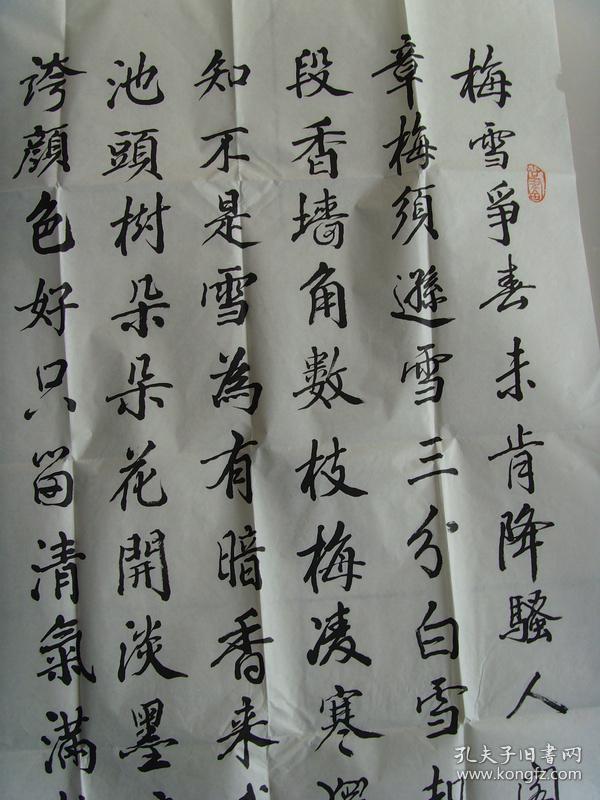 梅雪爭春未肯降騷人閣
章梅須遜雪三分白雪却
段香墻角數枝梅凌寒
知不是雪為有暗香来
池頭樹朵朵花開淡墨
誇顏色好只留清氣滿
孔夫子旧书网
www.kongfz.com